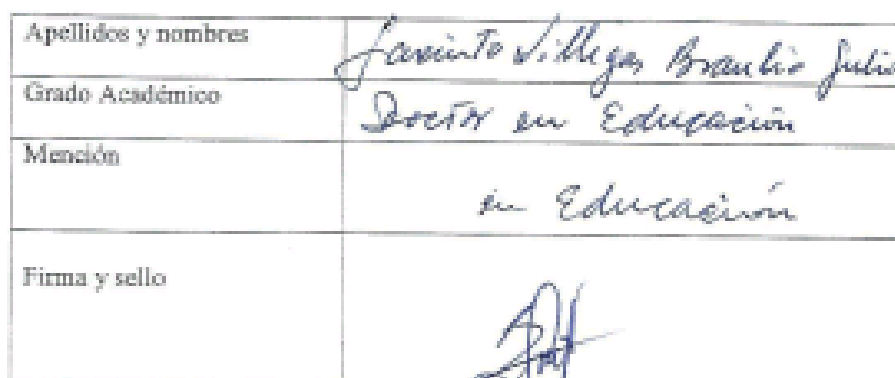 Apellidos y nombres Jacinto Villegas Braulio Julio
Grado Académico Doctor en Educación
Mención en Educación
Firma y sello